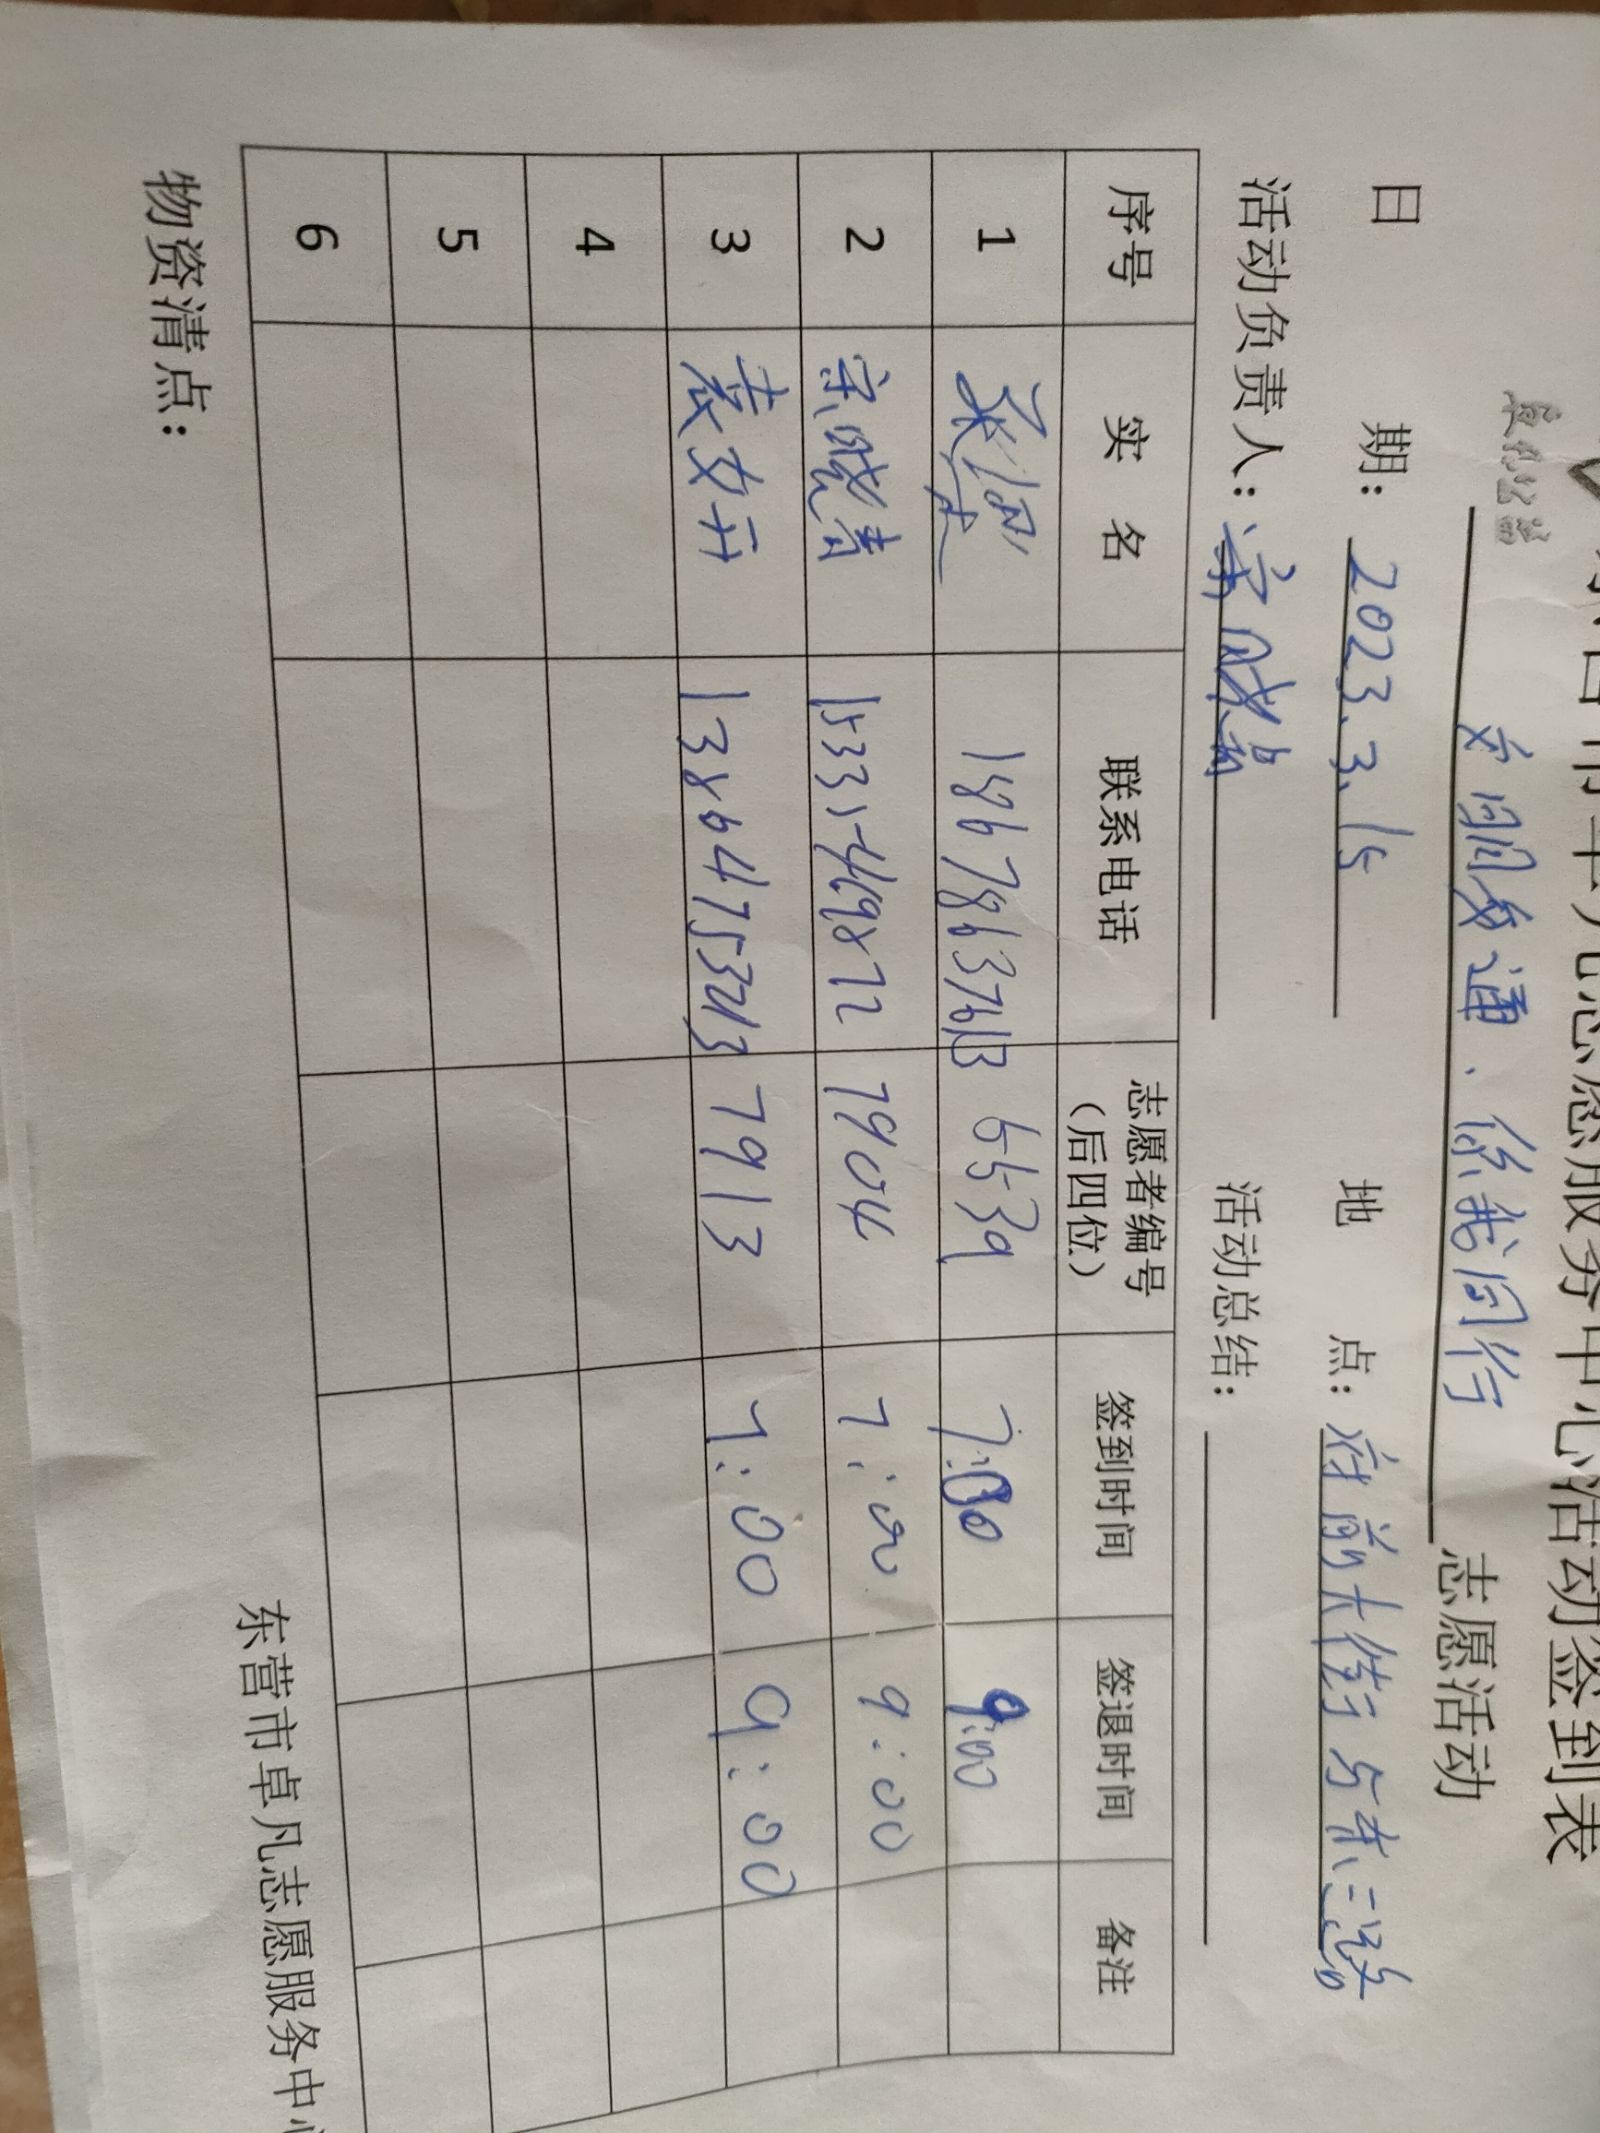 东营市卓凡志愿服务中心活动签到表
卓凡公益
文明交通、你我同行 志愿活动
日 期：2023.3.15 地 点：府前大街与东二路
活动负责人：宋晓青 活动总结：
序号 实 名 联系电话 志愿者编号（后四位） 签到时间 签退时间 备注
1 6539 7:00 9:00
2 宋晓青 7904 7:00 9:00
3 袁文卉 13864753213 7913 7:00 9:00
4
5
6
物资清点：
东营市卓凡志愿服务中心